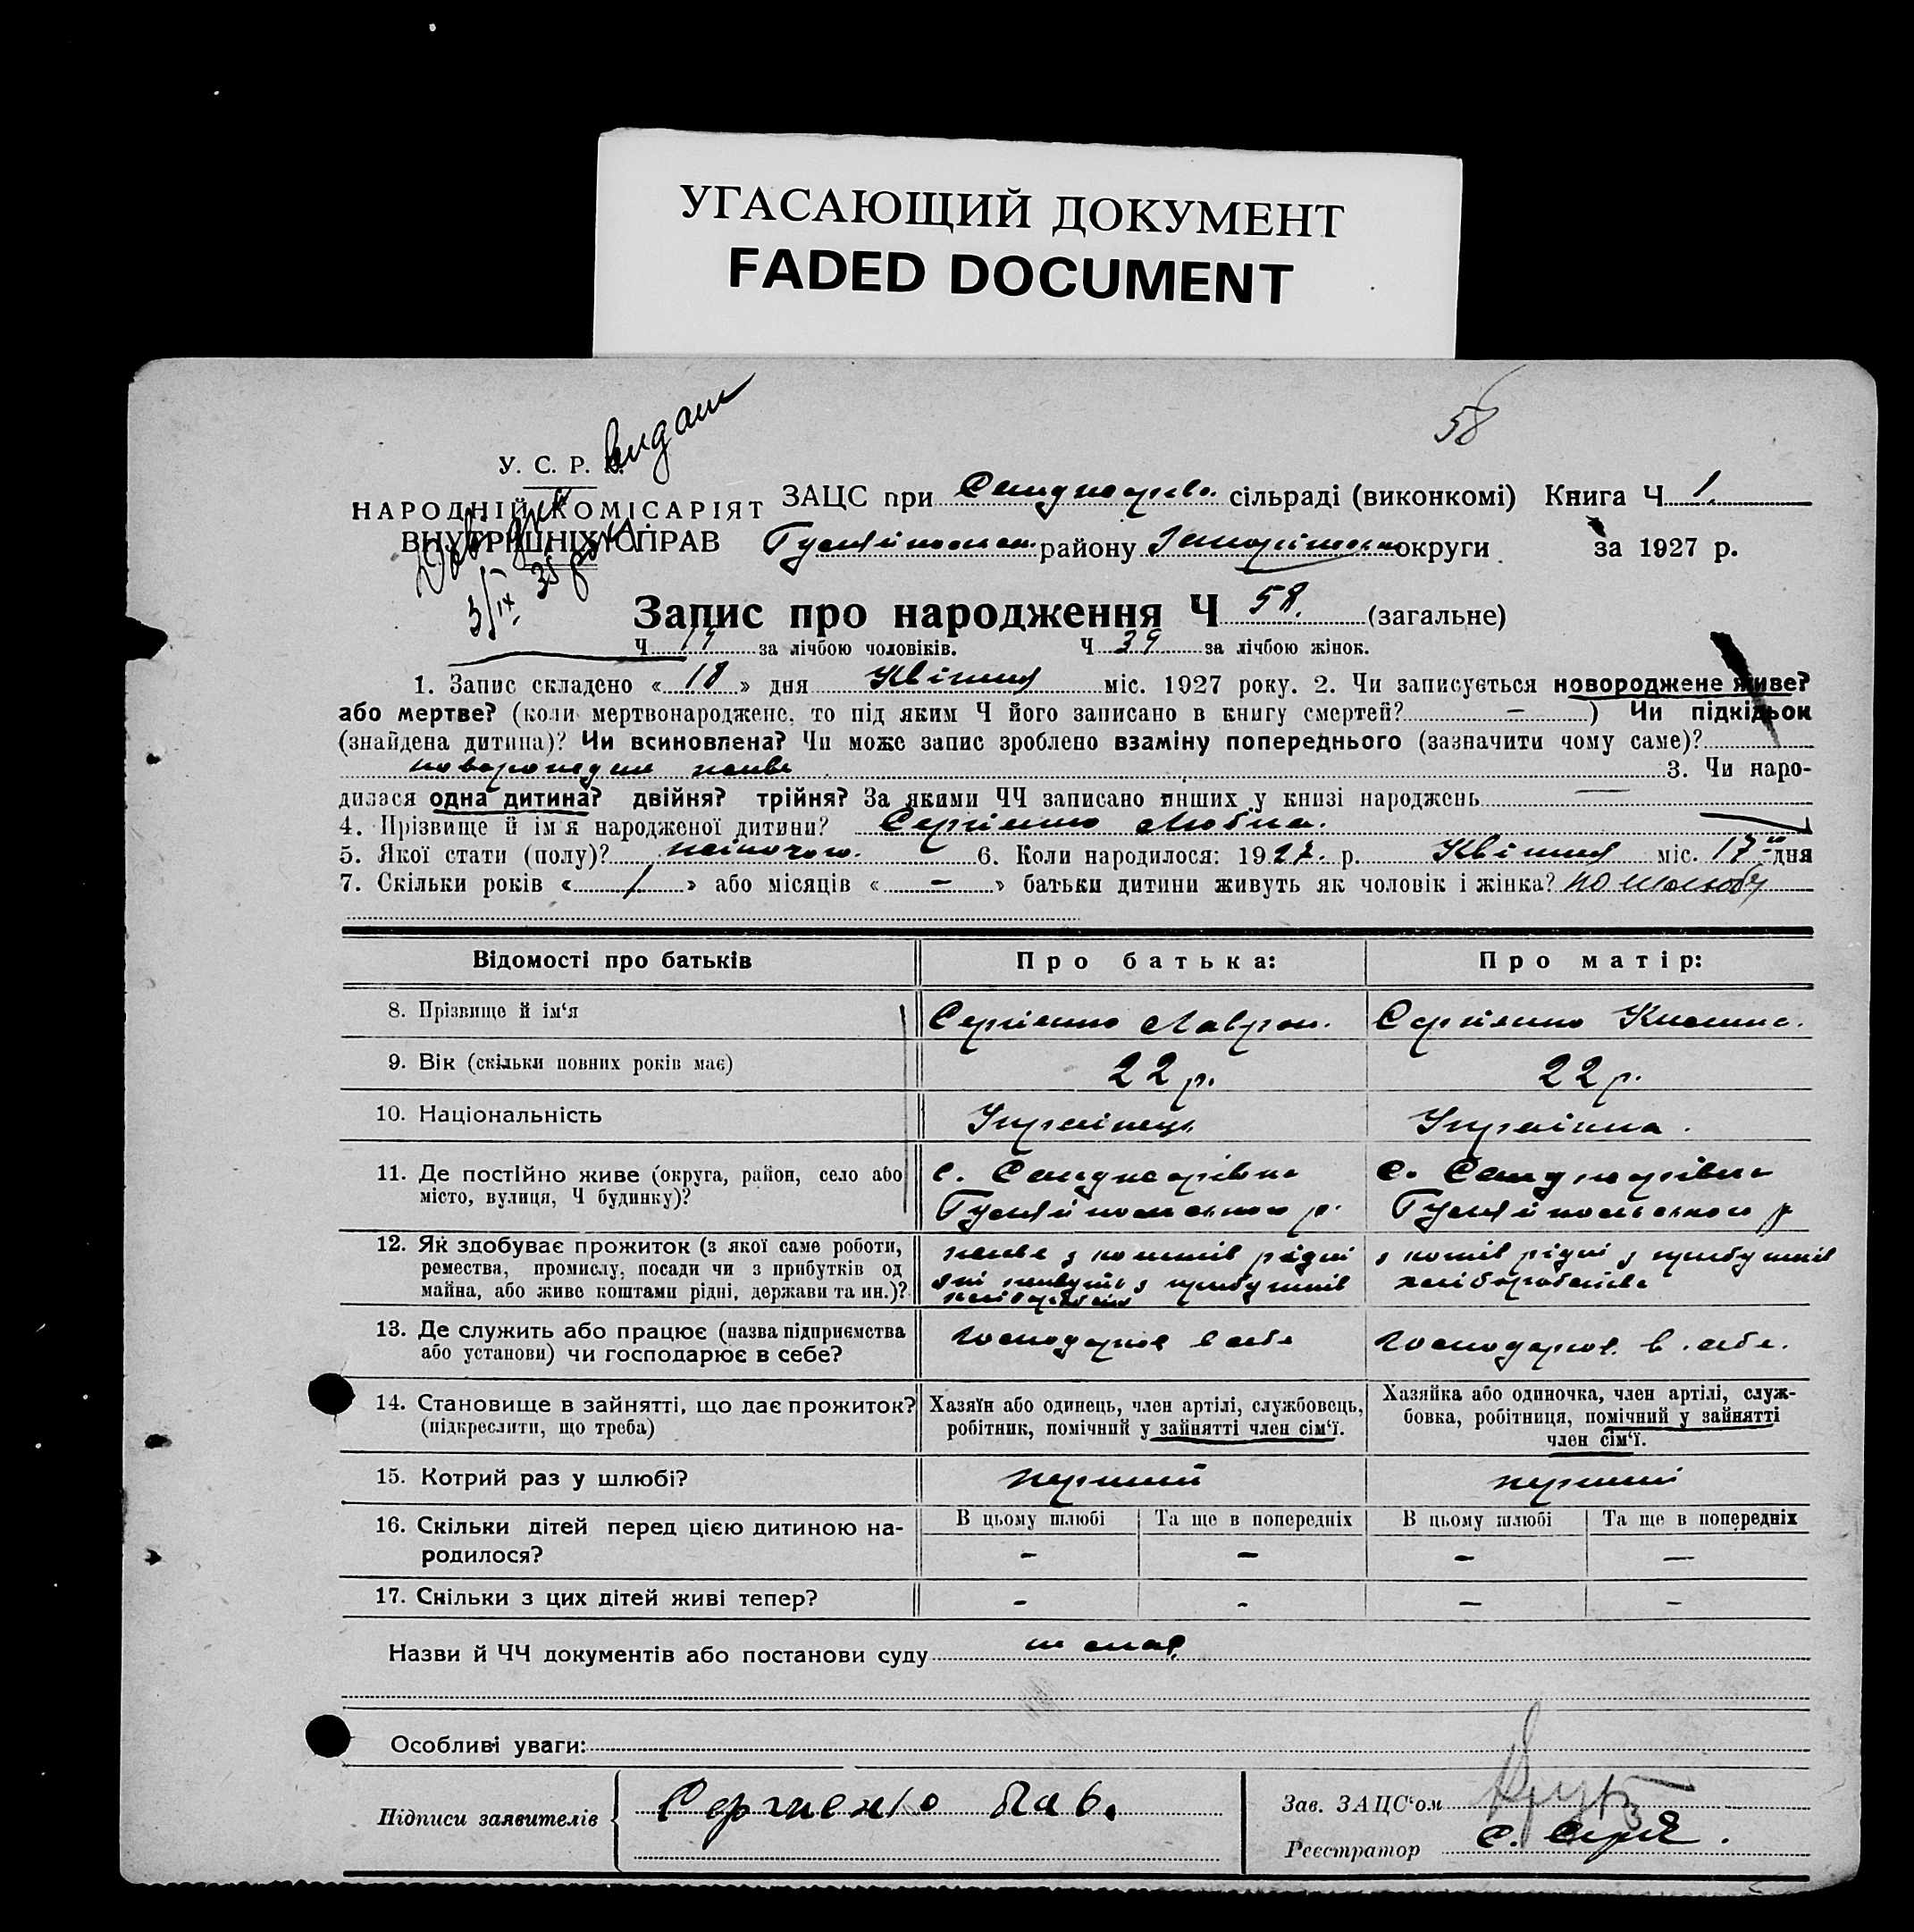 УГАСАЮЩИЙ ДОКУМЕНТ
FADED DOCUMENT
58
видан
У. С. Р. Р.
НАРОДНІЙ КОМІСАРІЯТ
ВНУТРІШНІХ СПРАВ
3/IX 35 року
ЗАЦС при сільраді (виконкомі) Книга Ч 1.
району округи за 1927 р.
Запис про народження Ч 58. (загальне)
Ч 19 за лічбою чоловіків. Ч 39 за лічбою жінок.
1. Запис складено «18» дня Квітня міс. 1927 року. 2. Чи записується новороджене живе?
або мертве? (коли мертвонароджене, то під яким Ч його записано в книгу смертей? – ) Чи підкідьок
(знайдена дитина)? Чи всиновлена? Чи може запис зроблено взаміну попереднього (зазначити чому саме)?
новорожедне живе 3. Чи наро-
дилася одна дитина? двійня? трійня? За якими ЧЧ записано инших у книзі народжень —
4. Прізвище й ім'я народженої дитини? Сергієнко Любка.
5. Якої стати (полу)? жіночого. 6. Коли народилося: 1927. р. Квітня міс. 17 дня
7. Скільки років « 1 » або місяців « – » батьки дитини живуть як чоловік і жінка? по шлюбу
Відомості про батьків
Про батька:
Про матір:
8. Прізвище й ім'я
Сергієнко Лаврон.
Сергієнко
9. Вік (скільки повних років має)
22 р.
22 р.
10. Національність
Українець
Українка.
11. Де постійно живе (округа, район, село або
місто, вулиця, Ч будинку)?
с.
р.
с.
р
12. Як здобуває прожиток (з якої саме роботи,
ремества, промислу, посади чи з прибутків од
майна, або живе коштами рідні, держави та ин.)?
живе з коштів рідні
які живуть з прибутків
хліборобства
з коштів рідні з прибутків
хліборобства
13. Де служить або працює (назва підприємства
або установи) чи господарює в себе?
господарює в себе
господарює в себе.
14. Становище в зайнятті, що дає прожиток?
(підкреслити, що треба)
Хазяїн або одинець, член артілі, службовець,
робітник, помічний у зайнятті член сім'ї.
Хазяйка або одиночка, член артілі, служ-
бовка, робітниця, помічний у зайнятті
член сім'ї.
15. Котрий раз у шлюбі?
перший
перший
16. Скільки дітей перед цією дитиною на-
родилося?
В цьому шлюбі
Та ще в попередніх
В цьому шлюбі
Та ще в попередніх
–
–
–
—
17. Скільки з цих дітей живі тепер?
–
-
—
–
Назви й ЧЧ документів або постанови суду
Особливі уваги:
Підписи заявителів
Сергиенко Лав.
Зав. ЗАЦС'ом
Реєстратор